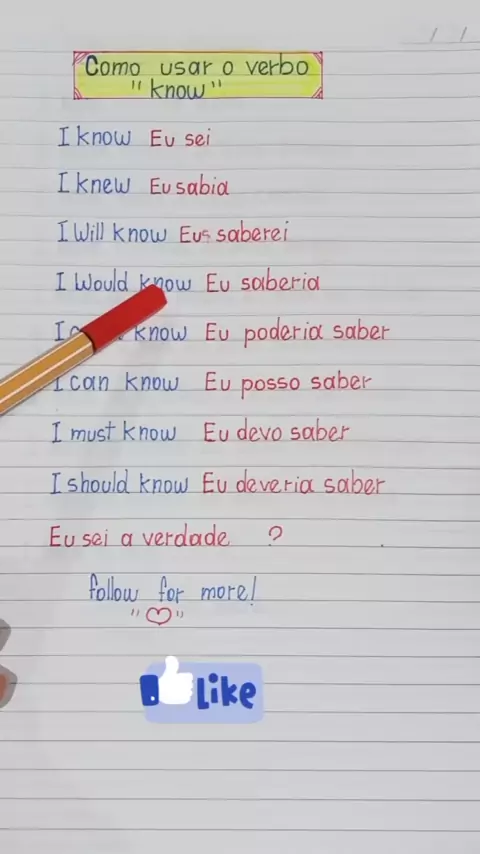 Como usar o verbo
"know"
I know Eu sei
I knew Eu sabia
I Will know Eu saberei
I Would know Eu saberia
I know Eu poderia saber
I can know Eu posso saber
I must know Eu devo saber
I should know Eu deveria saber
Eu sei a verdade ?
follow for more!
Like